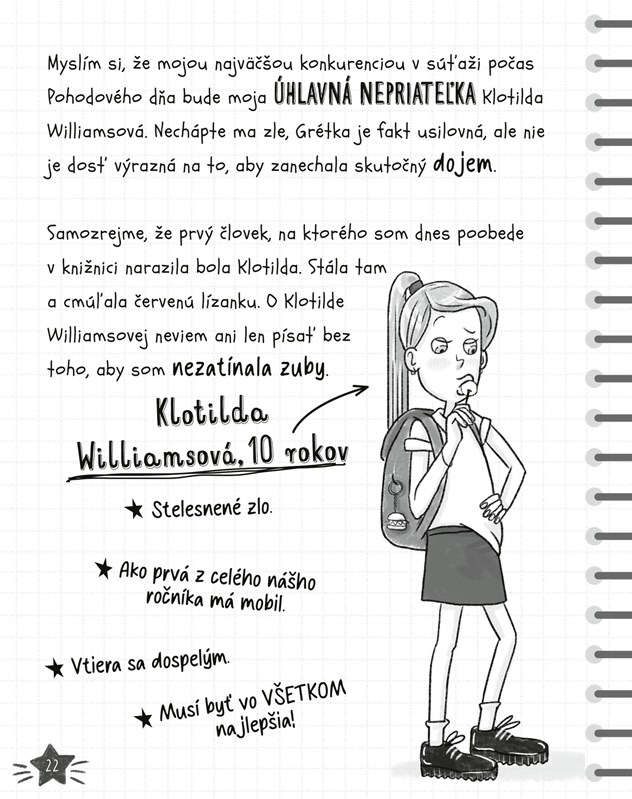 Myslím si, že mojou najväčšou konkurenciou v súťaži počas
Pohodového dňa bude moja ÚHLAVNÁ NEPRIATEĽKA Klotilda
Williamsová. Nechápte ma zle, Grétka je fakt usilovná, ale nie
je dosť výrazná na to, aby zanechala skutočný dojem.
Samozrejme, že prvý človek, na ktorého som dnes poobede
v knižnici narazila bola Klotilda. Stála tam
a cmúľala červenú lízanku. O Klotilde
Williamsovej neviem ani len písať bez
toho, aby som nezatínala zuby.
Klotilda
Williamsová, 10 rokov
★ Stelesnené zlo.
★ Ako prvá z celého nášho
ročníka má mobil.
★ Vtiera sa dospelým.
★ Musí byť vo VŠETKOM
najlepšia!
22